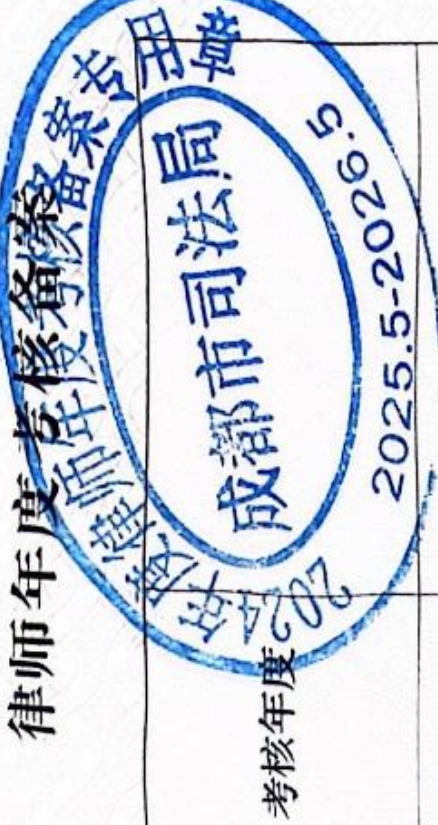 律师年度考核备案
考核年度
2024年度律师年度考核备案专用章
成都市司法局
2025.5-2026.5